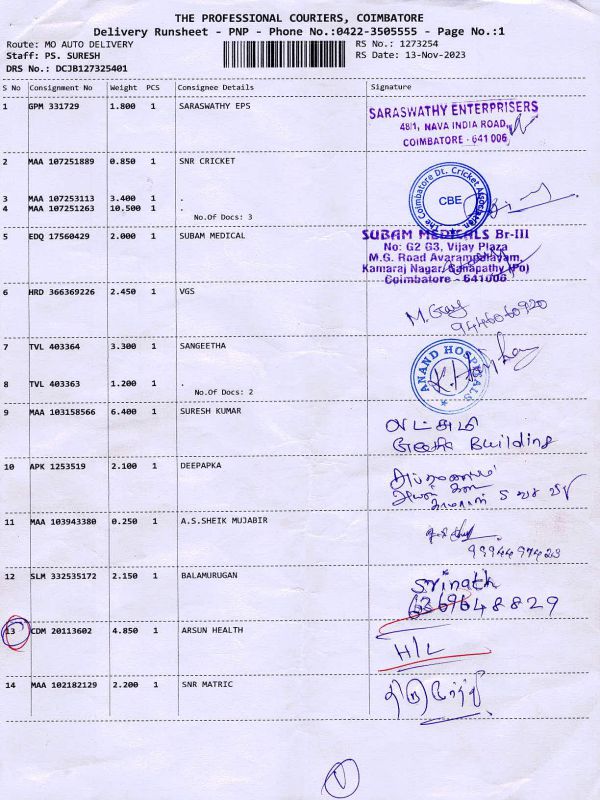 THE PROFESSIONAL COURIERS, COIMBATORE
Delivery Runsheet - PNP - Phone No.:0422-3505555 - Page No.:1
Route: MO AUTO DELIVERY RS No.: 1273254
Staff: PS. SURESH RS Date: 13-Nov-2023
DRS No.: DCJB127325401
S No Consignment No Weight PCS Consignee Details Signature
1 GPM 331729 1.800 1 SARASWATHY EPS
SARASWATHY ENTERPRISERS
48/1, NAVA INDIA ROAD,
COIMBATORE - 641 006
2 MAA 107251889 0.850 1 SNR CRICKET
The Coimbatore Dt. Cricket Association
CBE
3 MAA 107253113 3.400 1 .
4 MAA 107251263 10.500 1 .
No.Of Docs: 3
5 EDQ 17560429 2.000 1 SUBAM MEDICAL
SUBAM MEDICALS Br-III
No: G2 G3, Vijay Plaza
M.G. Road Avarampalayam,
Kamaraj Nagar, Ganapathy (Po)
Coimbatore - 641006
6 HRD 366369226 2.450 1 VGS
7 TVL 403364 3.300 1 SANGEETHA
ANAND HOSPITALS
8 TVL 403363 1.200 1 .
No.Of Docs: 2
9 MAA 103158566 6.400 1 SURESH KUMAR
Geetha Building
10 APK 1253519 2.100 1 DEEPAPKA
11 MAA 103943380 0.250 1 A.S.SHEIK MUJABIR
9994497423
12 SLM 332535172 2.150 1 BALAMURUGAN
Srinath
6369648829
13 CDM 20113602 4.850 1 ARSUN HEALTH
H/L
14 MAA 102182129 2.200 1 SNR MATRIC